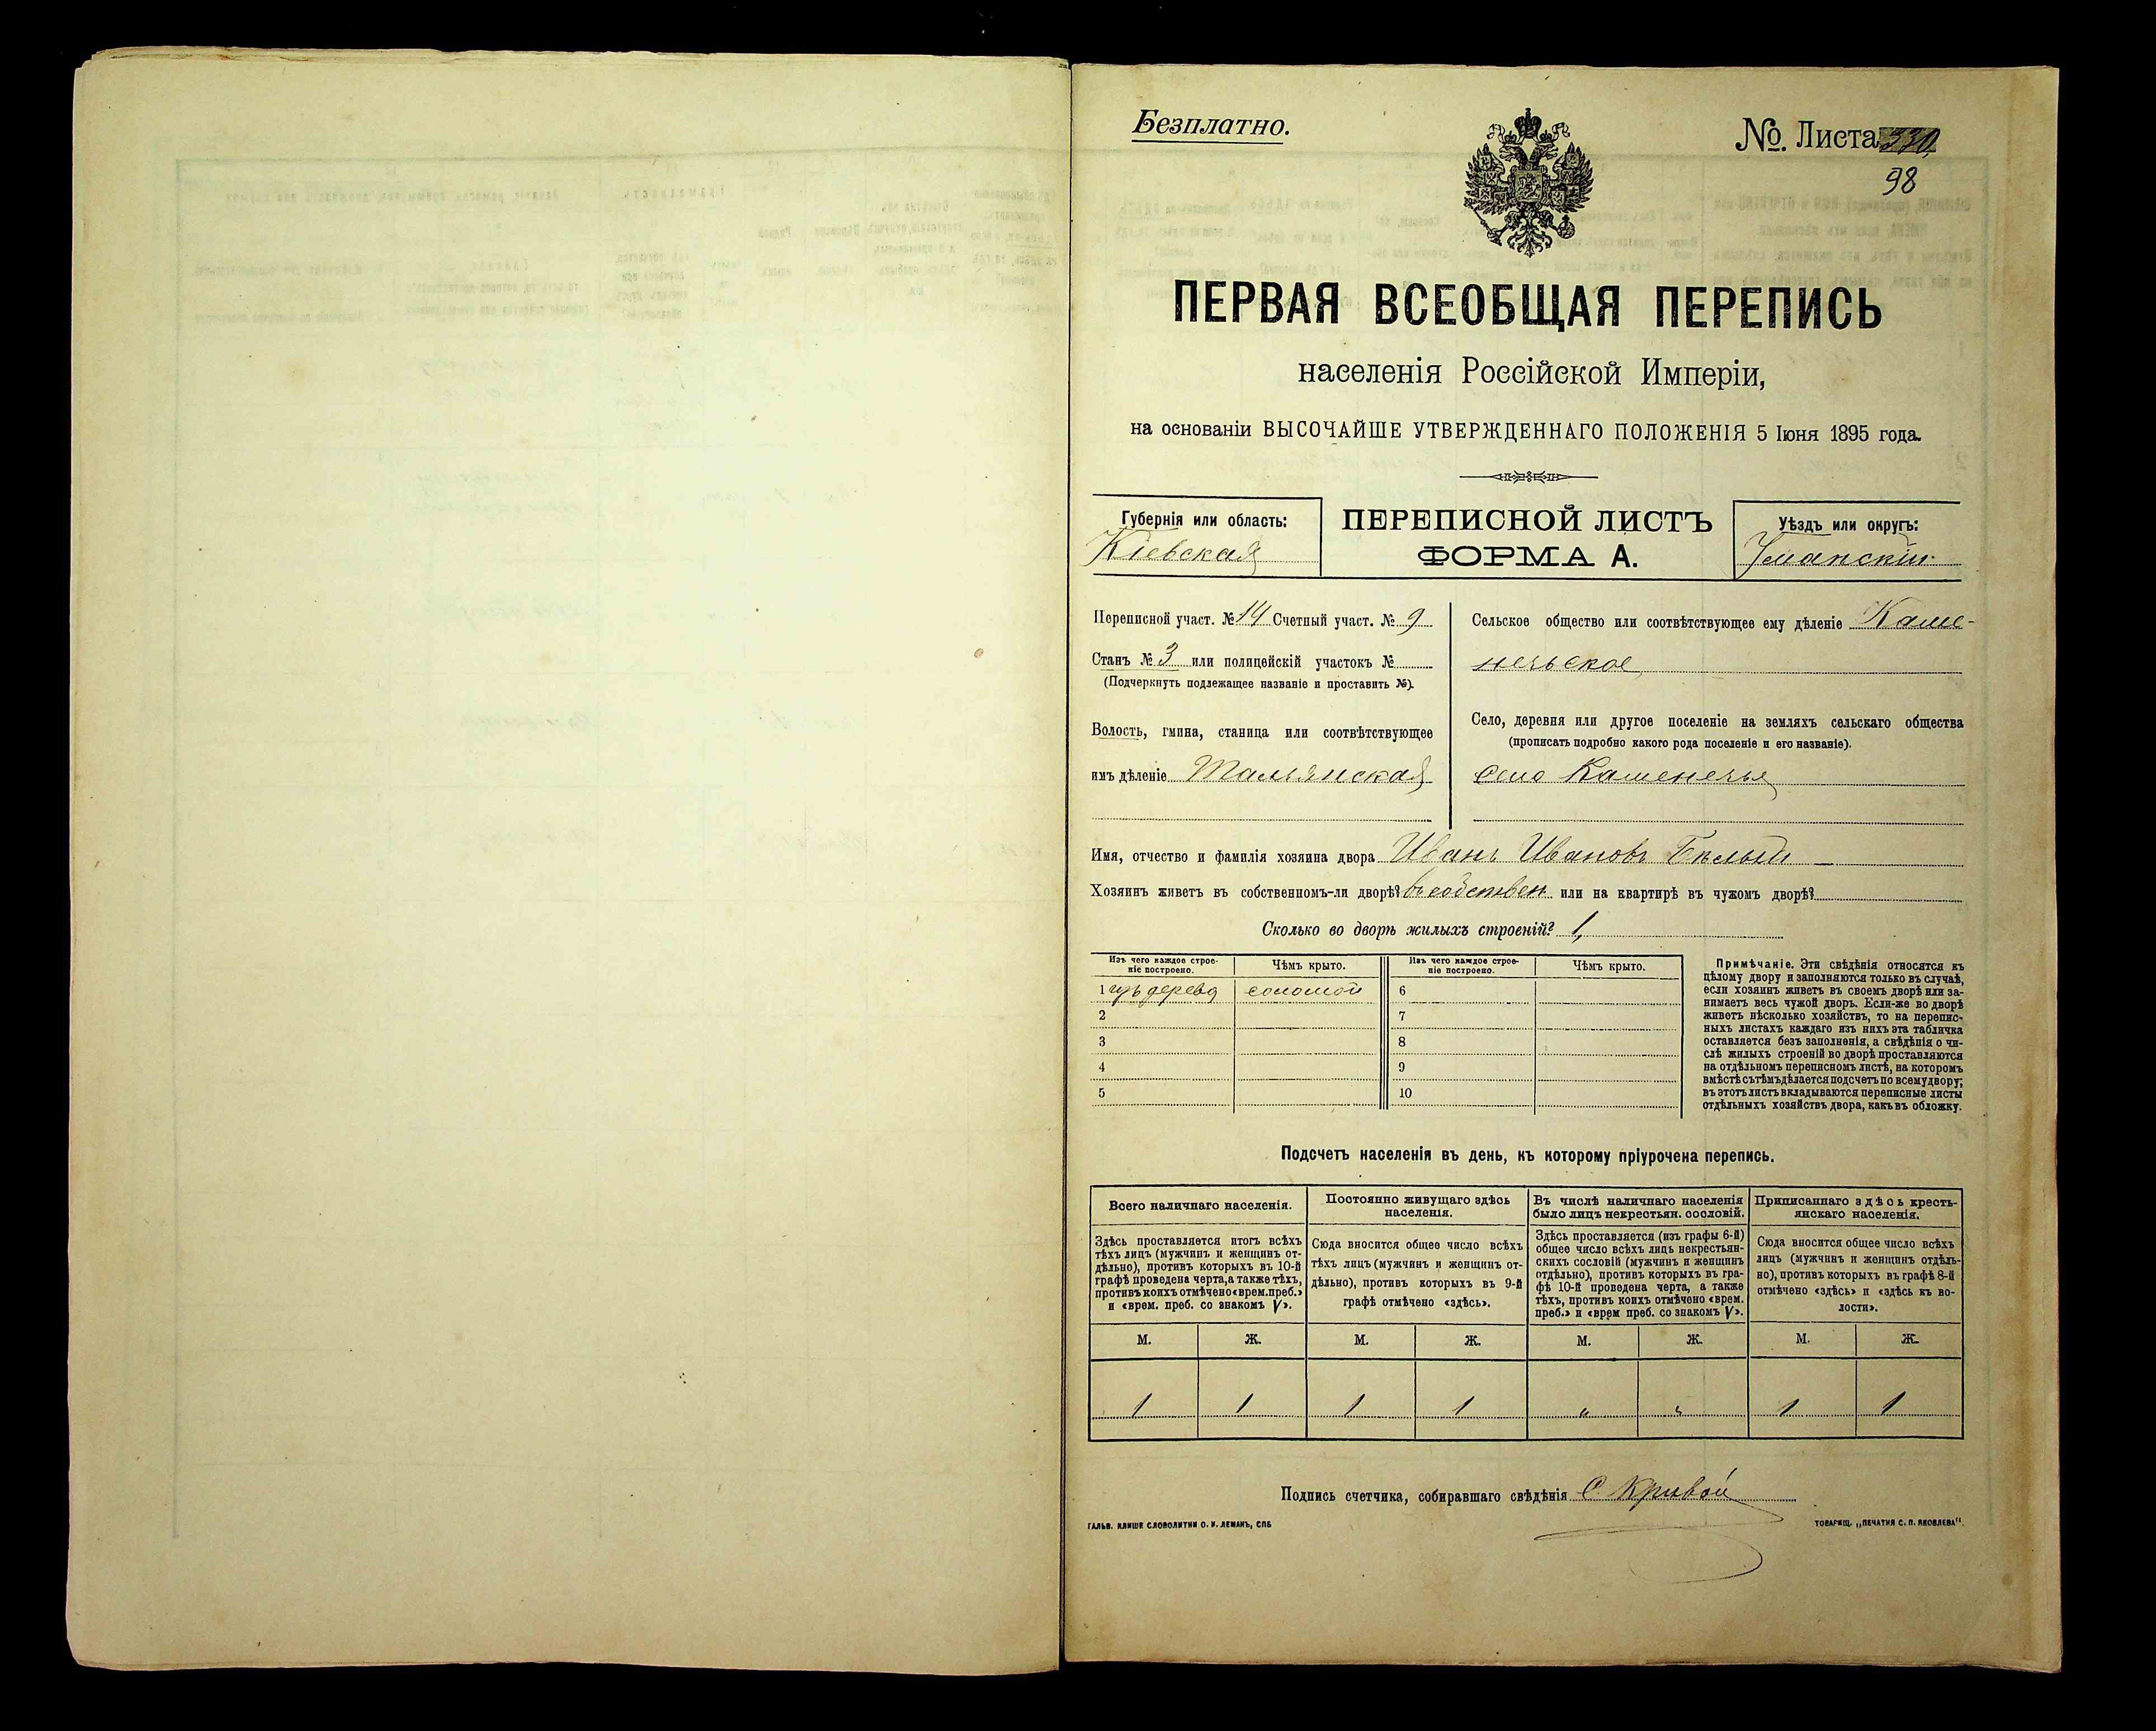 Безплатно.
№. Листа 330
98
ПЕРВАЯ ВСЕОБЩАЯ ПЕРЕПИСЬ
населенія Россійской Имперіи,
на основаніи ВЫСОЧАЙШЕ УТВЕРЖДЕННАГО ПОЛОЖЕНІЯ 5 Іюня 1895 года.
Губернія или область:
Кіевская
ПЕРЕПИСНОЙ ЛИСТЪ
ФОРМА А.
Уѣздъ или округъ:
Уманскій
Переписной участ. № 14 Счетный участ. № 9
Станъ № 3 или полицейскій участокъ №
(Подчеркнуть подлежащее названіе и проставить №).
Волость, гмина, станица или соотвѣтствующее
имъ дѣленіе Тальянская
Сельское общество или соотвѣтствующее ему дѣленіе Каме-
нечьское
Село, деревня или другое поселеніе на земляхъ сельскаго общества
(прописать подробно какого рода поселеніе и его названіе).
село Каменечье
Имя, отчество и фамилія хозяина двора Иванъ Ивановъ Бѣлый
Хозяинъ живетъ въ собственномъ-ли дворѣ? въ собствен. или на квартирѣ въ чужомъ дворѣ?
Сколько во дворѣ жилыхъ строеній? 1,
Изъ чего каждое строе-
ніе построено.
Чѣмъ крыто.
Изъ чего каждое строе-
ніе построено.
Чѣмъ крыто.
1 изъ дерева соломой 6
2 7
3 8
4 9
5 10
Примѣчаніе. Эти свѣдѣнія относятся къ
цѣлому двору и заполняются только въ случаѣ,
если хозяинъ живетъ въ своемъ дворѣ или за-
нимаетъ весь чужой дворъ. Если-же во дворѣ
живетъ нѣсколько хозяйствъ, то на перепис-
ныхъ листахъ каждаго изъ нихъ эта табличка
оставляется безъ заполненія, а свѣдѣнія о чи-
слѣ жилыхъ строеній во дворѣ проставляются
на отдѣльномъ переписномъ листѣ, на которомъ
вмѣстѣ съ тѣмъ дѣлается подсчетъ по всему двору;
въ этотъ листъ вкладываются переписные листы
отдѣльныхъ хозяйствъ двора, какъ въ обложку.
Подсчетъ населенія въ день, къ которому пріурочена перепись.
Всего наличнаго населенія.
Здѣсь проставляется итогъ всѣхъ
тѣхъ лицъ (мужчинъ и женщинъ от-
дѣльно), противъ которыхъ въ 10-й
графѣ проведена черта, а также тѣхъ,
противъ коихъ отмѣчено «врем. преб.»
и «врем. преб. со знакомъ V».
Постоянно живущаго здѣсь
населенія.
Сюда вносится общее число всѣхъ
тѣхъ лицъ (мужчинъ и женщинъ от-
дѣльно), противъ которыхъ въ 9-й
графѣ отмѣчено «здѣсь».
Въ числѣ наличнаго населенія
было лицъ некрестьян. сословій.
Здѣсь проставляется (изъ графы 6-й)
общее число всѣхъ лицъ некрестьян-
скихъ сословій (мужчинъ и женщинъ
отдѣльно), противъ которыхъ въ гра-
фѣ 10-й проведена черта, а также
тѣхъ, противъ коихъ отмѣчено «врем.
преб.» и «врем преб. со знакомъ V».
Приписаннаго здѣсь кресть-
янскаго населенія.
Сюда вносится общее число всѣхъ
лицъ (мужчинъ и женщинъ отдѣль-
но), противъ которыхъ въ графѣ 8-й
отмѣчено «здѣсь» и «здѣсь къ во-
лости».
М. Ж. М. Ж. М. Ж. М. Ж.
1 1 1 1 " " 1 1
Подпись счетчика, собиравшаго свѣдѣнія С. Кривой
ГАЛЬВ. КЛИШЕ СЛОВОЛИТНИ О. И. ЛЕМАНЪ, СПБ
ТОВАРИЩ. „ПЕЧАТНЯ С. П. ЯКОВЛЕВА“.